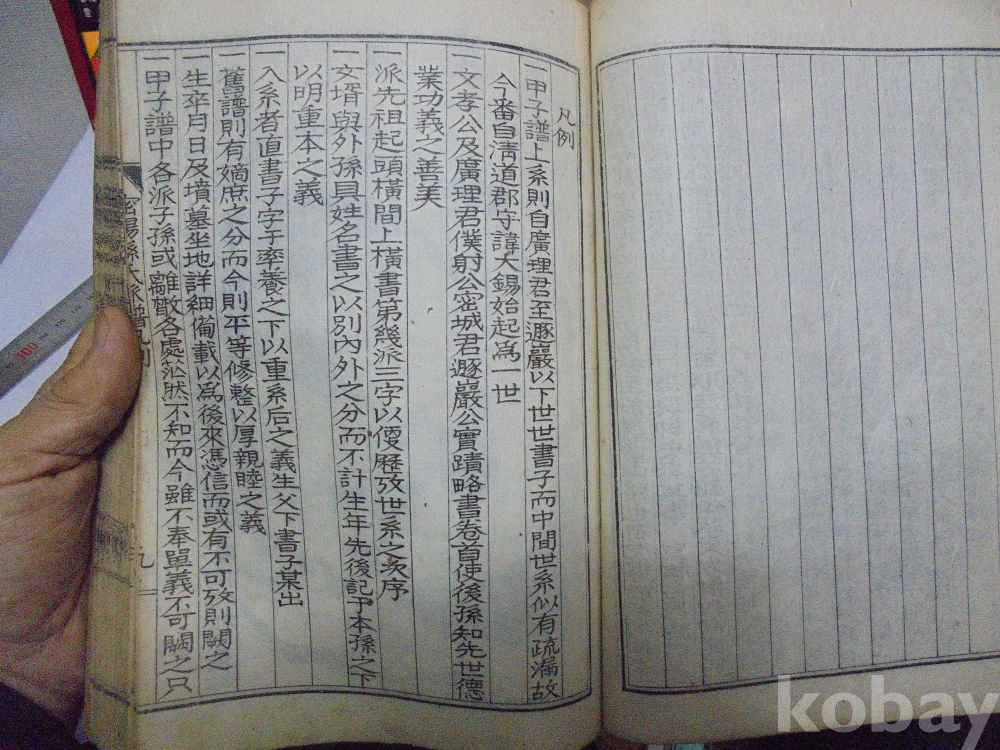 凡例
一甲子譜上系則自廣理君至遯巖以下世世書子而中間世系似有疏漏故
今番自清道郡守諱大錫始起爲一世
一文孝公及廣理君僕射公密城君遯巖公實蹟略書卷首使後孫知先世德
業功義之善美
一派先祖起頭橫間上橫書第幾派三字以便歷攷世系之次序
一女壻與外孫具姓名書之以別內外之分而不計生年先後記于本孫之下
以明重本之義
一入系者直書子字于率養之下以重系后之義生父下書子某出
一舊譜則有嫡庶之分而今則平等修整以厚親睦之義
一生卒月日及墳墓坐地詳細備載以爲後來憑信而或有不可攷則闕之
一甲子譜中各派子孫或離散各處茫然不知而今雖不奉單義不可闕之只
密陽孫氏派譜凡例
九
100
kobay